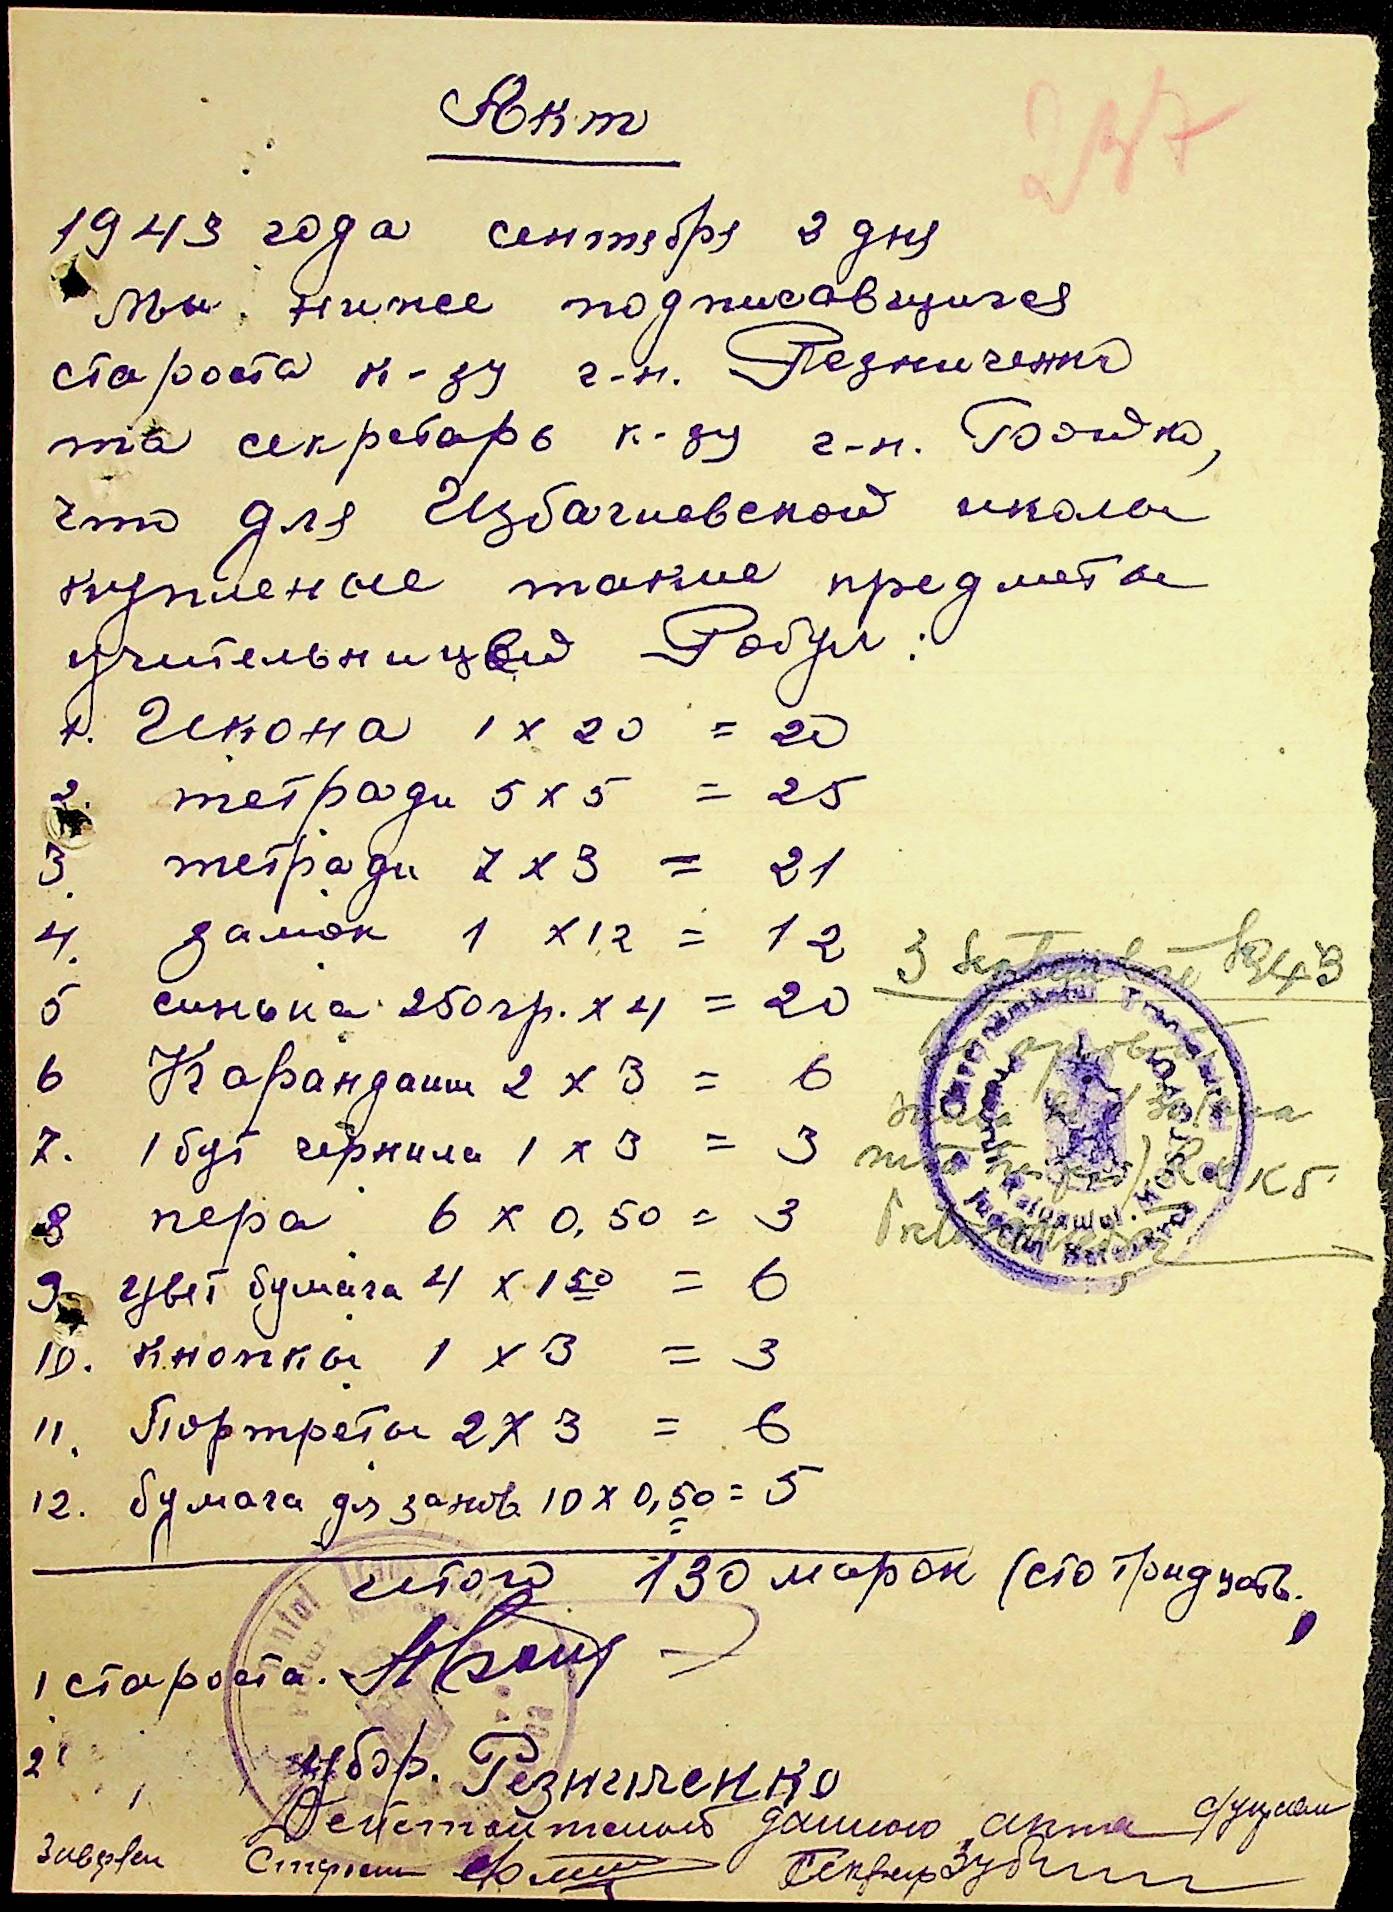 Акт
237
1943 года сентября 3 дня
Мы ниже подписавщиися
староста к-зу г-н. Резниченко
та секретарь к-зу г-н. Бойко,
что для Избашевской школы
купленые такие предметы
учительницей Робул:
1. Икона 1 х 20 = 20
2. тетради 5 х 5 = 25
3. тетради 7 х 3 = 21
4. замок 1 х 12 = 12
5 синька 250гр. х 4 = 20
6 Карандаш 2 х 3 = 6
7. 1 бут чернила 1 х 3 = 3
8 пера 6 х 0,50 = 3
9. цвет бумага 4 х 1 50 = 6
10. кнопкы 1 х 3 = 3
11. Портреты 2 х 3 = 6
12. бумага дл занов. 10 х 0,50 = 5
итого 130 марок (сто тридцать,
3 Septembrie 1943
1 староста.
2
Резниченко
данного акта